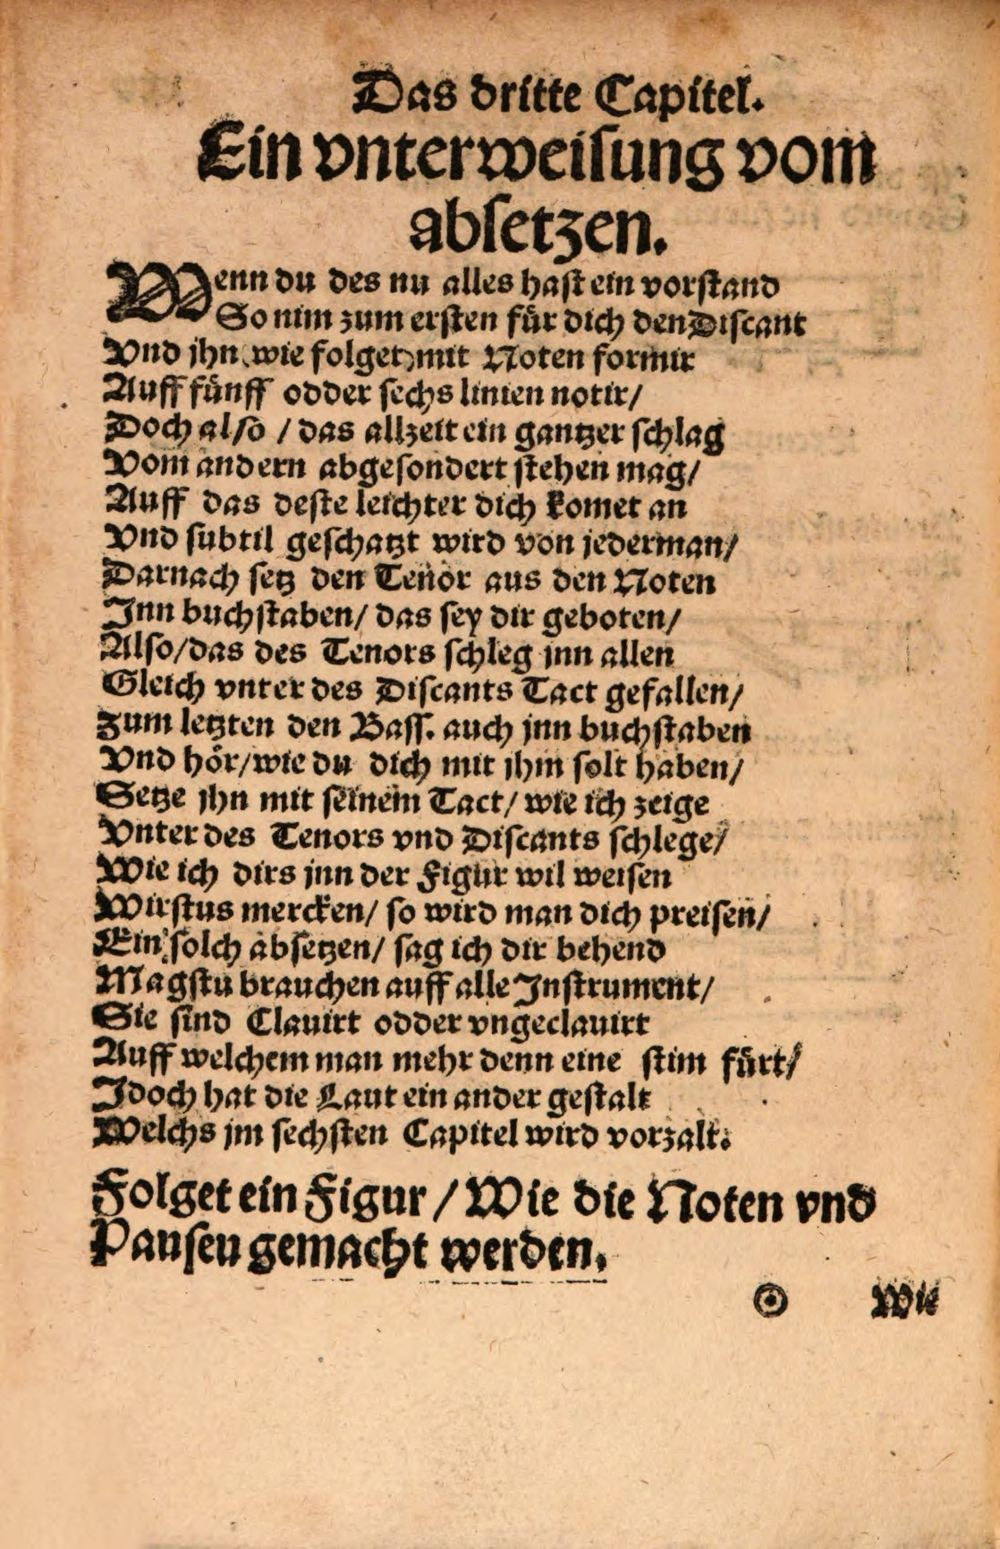 Das dritte Capitel.
Ein vnterweisung vom
absetzen.
Wenn du des nu alles hast ein vorstand
So nim zum ersten für dich den Discant
Vnd jhn wie folget mit Noten formir
Auff fünff odder sechs linien notir/
Doch also / das allzeit ein gantzer schlag
Vom andern abgesondert stehen mag/
Auff das deste leichter dich komet an
Vnd subtil geschatzt wird von jederman/
Darnach setz den Tenor aus den Noten
Inn buchstaben/ das sey dir geboten/
Also/das des Tenors schleg jnn allen
Gleich vnter des Discants Tact gefallen/
Zum letzten den Bass. auch jnn buchstaben
Vnd hör/wie du dich mit jhm solt haben/
Setze jhn mit seinem Tact/ wie ich zeige
Vnter des Tenors vnd Discants schlege/
Wie ich dirs jnn der Figur wil weisen
Wirstus mercken/ so wird man dich preisen/
Ein solch absetzen/ sag ich dir behend
Magstu brauchen auff alle Instrument/
Sie sind Clauirt odder vngeclauirt
Auff welchem man mehr denn eine stim fürt/
Idoch hat die Laut ein ander gestalt
Welchs jm sechsten Capitel wird vorzalt.
Folget ein Figur / Wie die Noten vnd
Pausen gemacht werden.
Wie